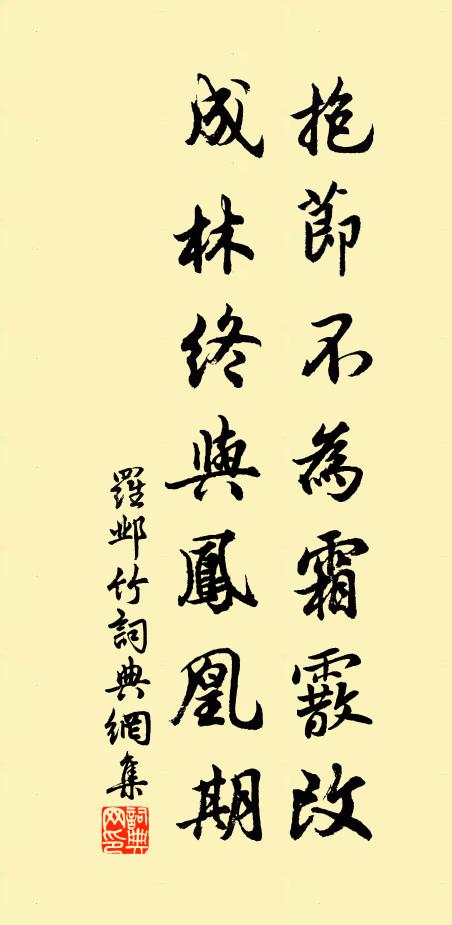 抱節不為霜霰改
成林終與鳳凰期
羅鄴竹詞典網集
詞典网印